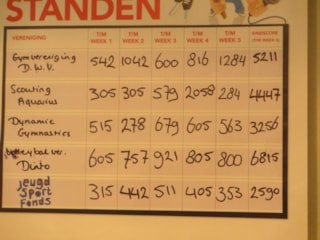 STANDEN
VERENIGING T/M WEEK 1 T/M WEEK 2 T/M WEEK 3 T/M WEEK 4 T/M WEEK 5 EINDSCORE
Gymvereniging D.W.V. 542 1042 600 816 1284 5211
Scouting Aquarius 305 305 579 2058 284 4447
Dynamic Gymnastics 515 278 679 605 563 3256
ver. Dinto 605 757 921 805 800 6815
Jeugd Sport Fonds 315 442 511 405 353 2590